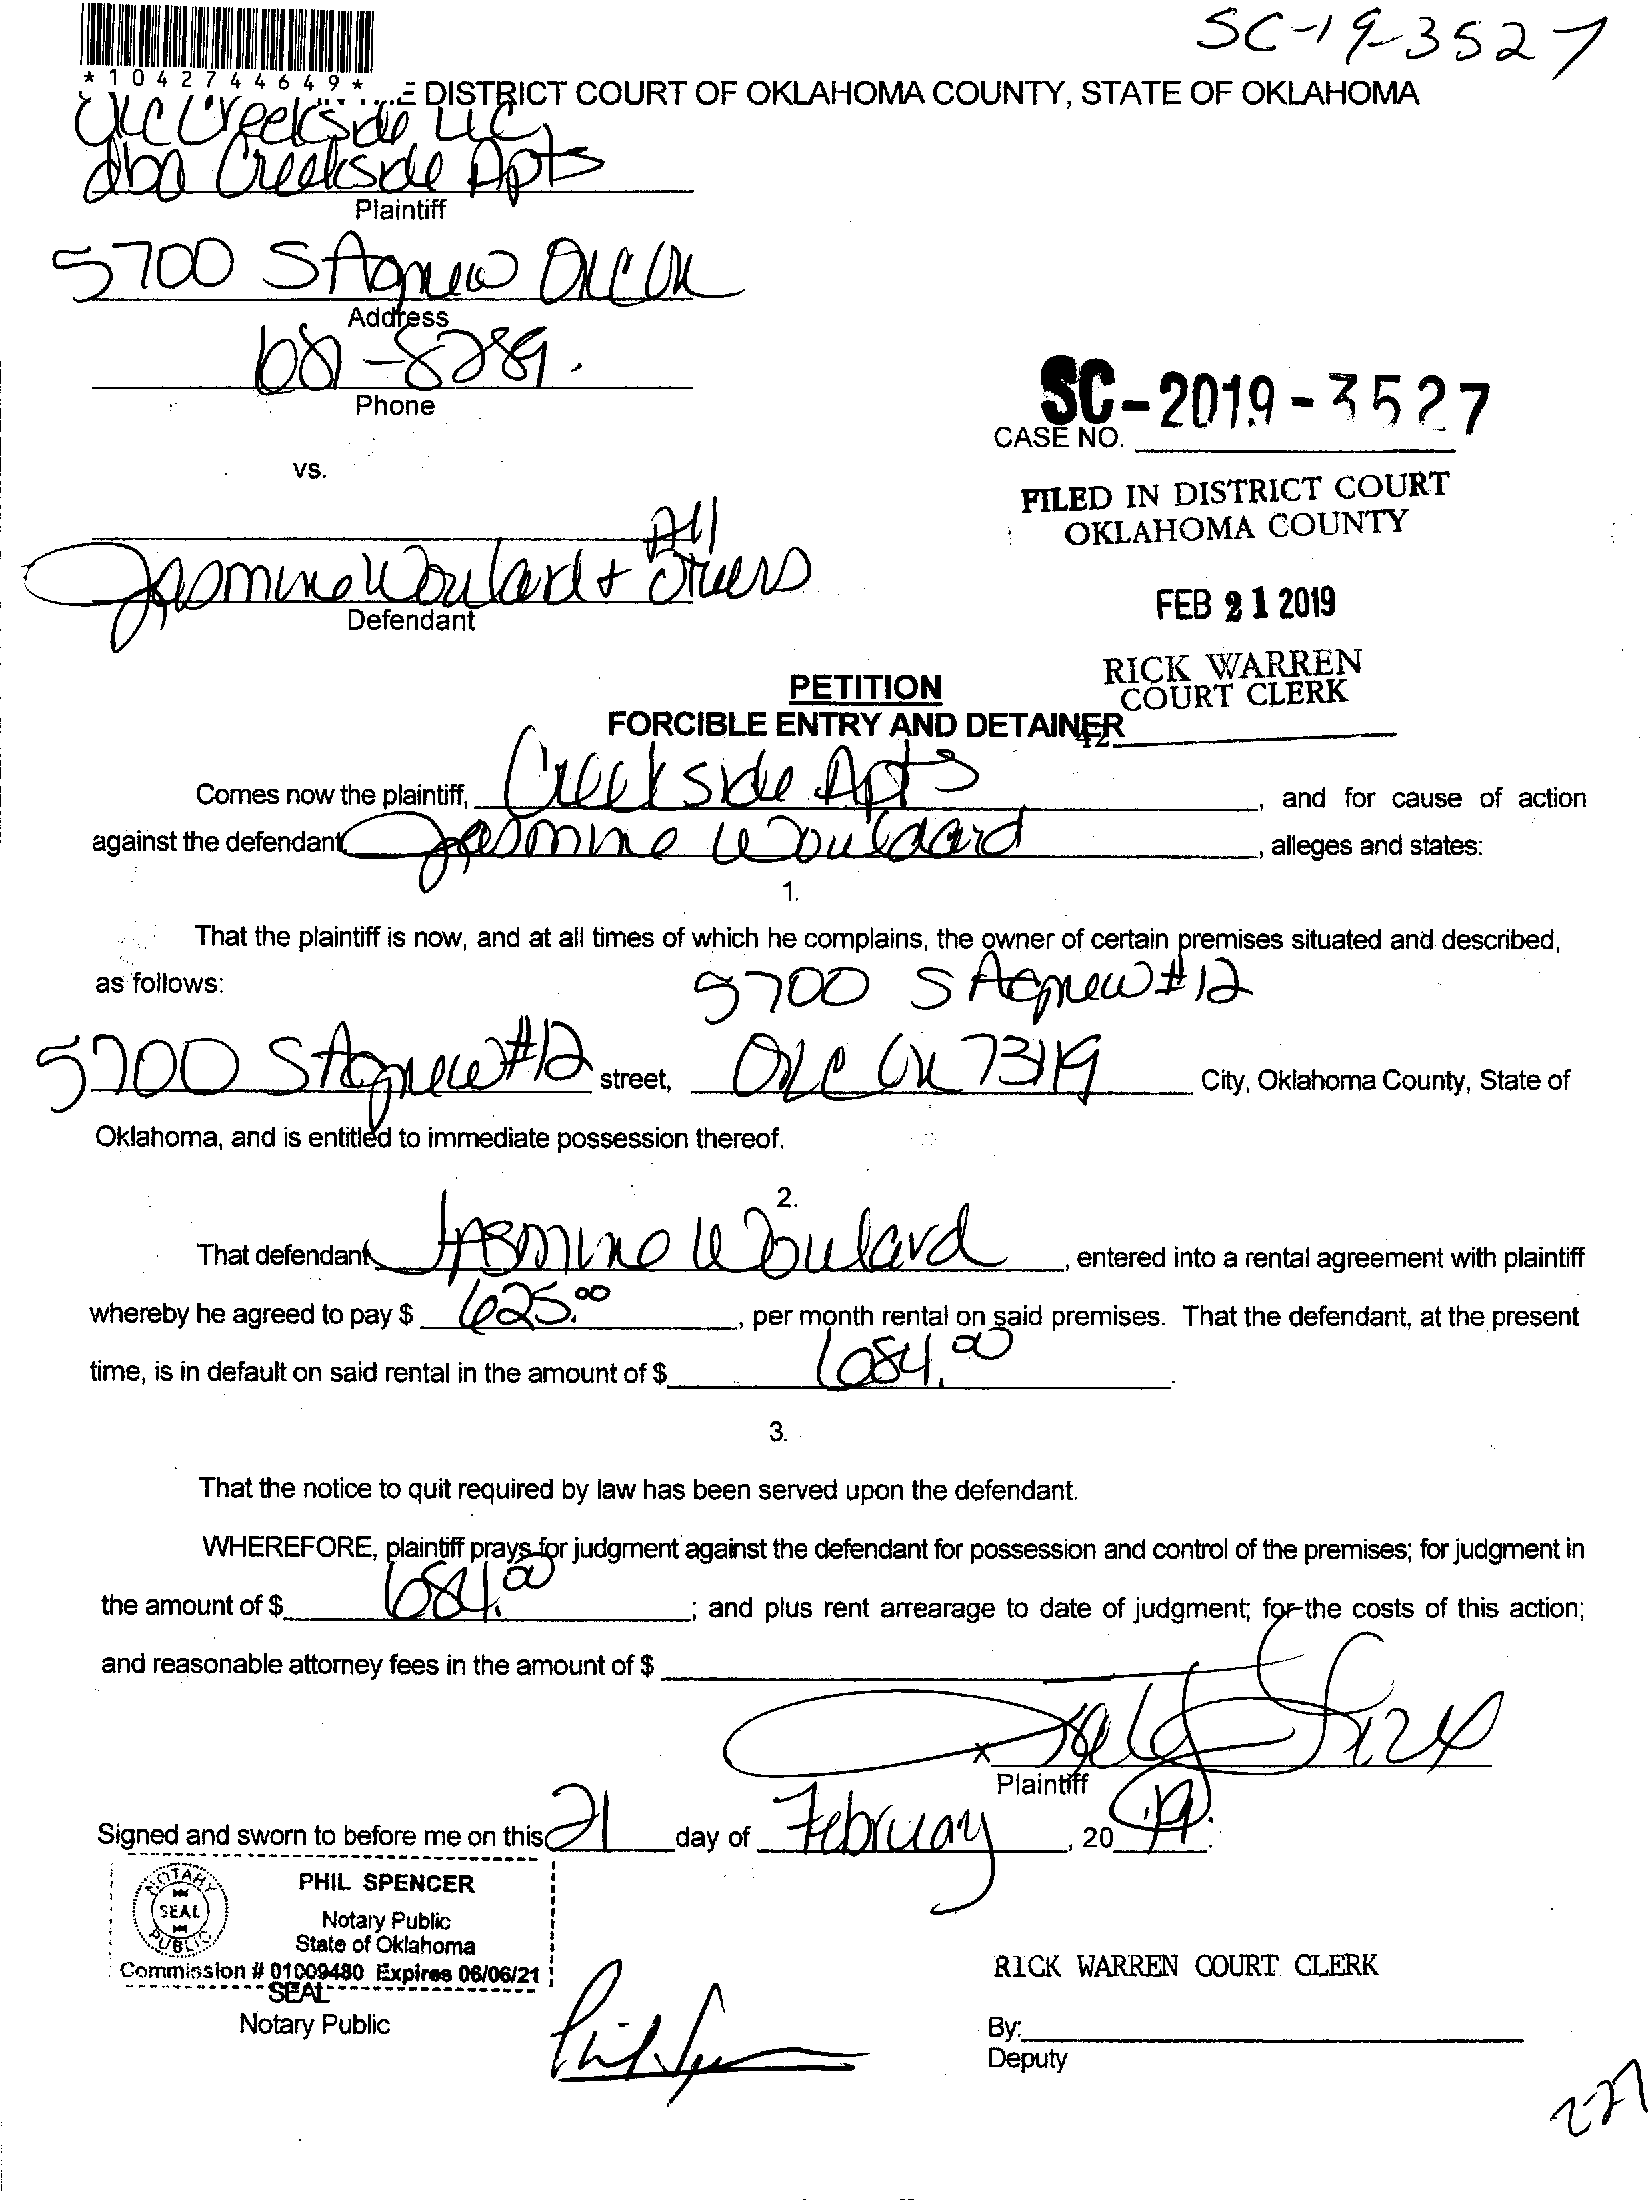 SC-19-3527
*1042744649*
DISTRICT COURT OF OKLAHOMA COUNTY, STATE OF OKLAHOMA
Creekside LLC,
dba Creekside Apts
Plaintiff
5700 S Agnew OKC OK
Address
681-8289.
Phone
SC-2019-3527
CASE NO.
vs.
FILED IN DISTRICT COURT
OKLAHOMA COUNTY
All
Jasmine Woulard + Others
Defendant
FEB 21 2019
RICK WARREN
COURT CLERK
PETITION
FORCIBLE ENTRY AND DETAINER
42
Comes now the plaintiff, Creekside Apts, and for cause of action
against the defendant Jasmine Woulaard, alleges and states:
1.
That the plaintiff is now, and at all times of which he complains, the owner of certain premises situated and described,
as follows: 5700 S Agnew #12
5700 S Agnew #12 street, OKC OK 73119 City, Oklahoma County, State of
Oklahoma, and is entitled to immediate possession thereof.
2.
That defendant Jasmine Woulard, entered into a rental agreement with plaintiff
whereby he agreed to pay $ 625.00, per month rental on said premises. That the defendant, at the present
time, is in default on said rental in the amount of $ 684.00.
3.
That the notice to quit required by law has been served upon the defendant.
WHEREFORE, plaintiff prays for judgment against the defendant for possession and control of the premises; for judgment in
the amount of $ 684.00; and plus rent arrearage to date of judgment; for the costs of this action;
and reasonable attorney fees in the amount of $
x
Plaintiff
Signed and sworn to before me on this 21 day of February, 20 19.
NOTARY SEAL PUBLIC
PHIL SPENCER
Notary Public
State of Oklahoma
Commission # 01009480 Expires 06/06/21
SEAL
Notary Public
RICK WARREN COURT CLERK
By:
Deputy
227